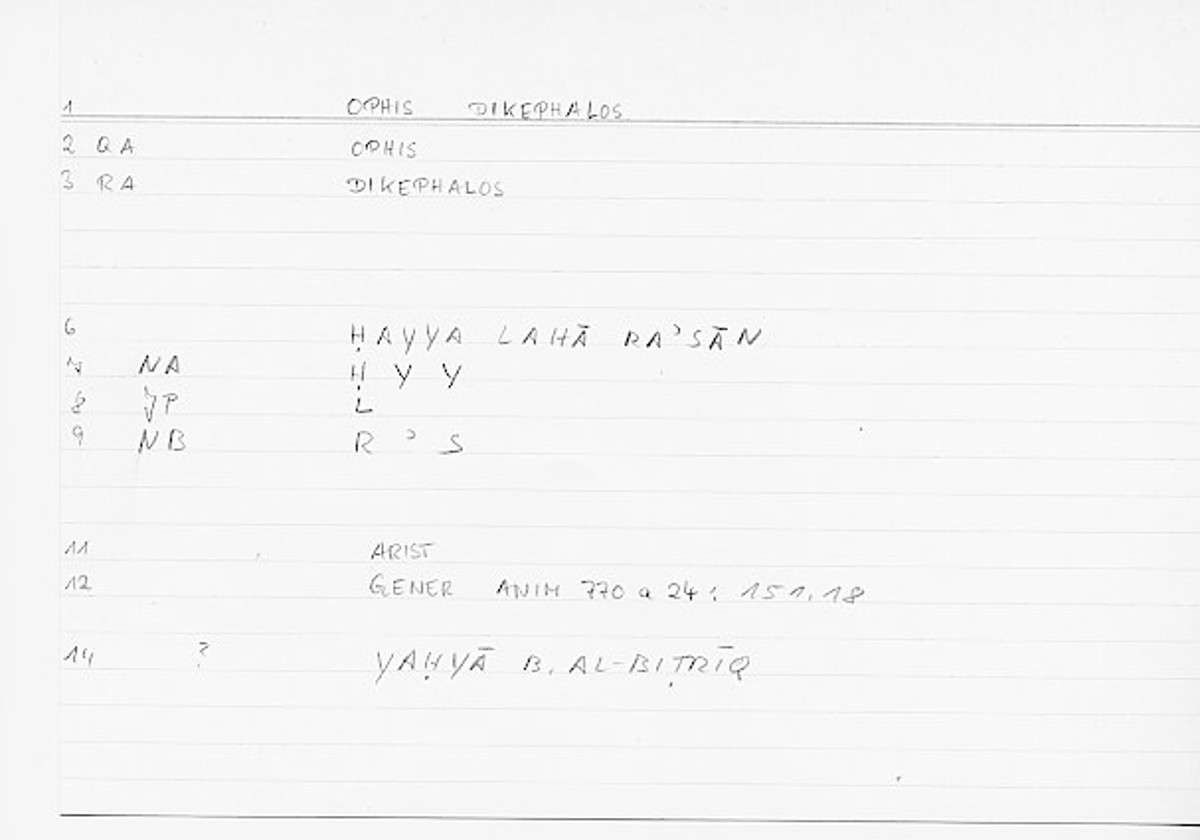 1 OPHIS DIKEPHALOS
2 QA OPHIS
3 RA DIKEPHALOS
6 ḤAYYA LAHĀ RAʾSĀN
7 NA Ḥ Y Y
8 JP L
9 NB R ʾ S
11 ARIST
12 GENER ANIM 770 a 24 : 151.18
14 ? YAḤYĀ B. AL-BIṬRĪQ